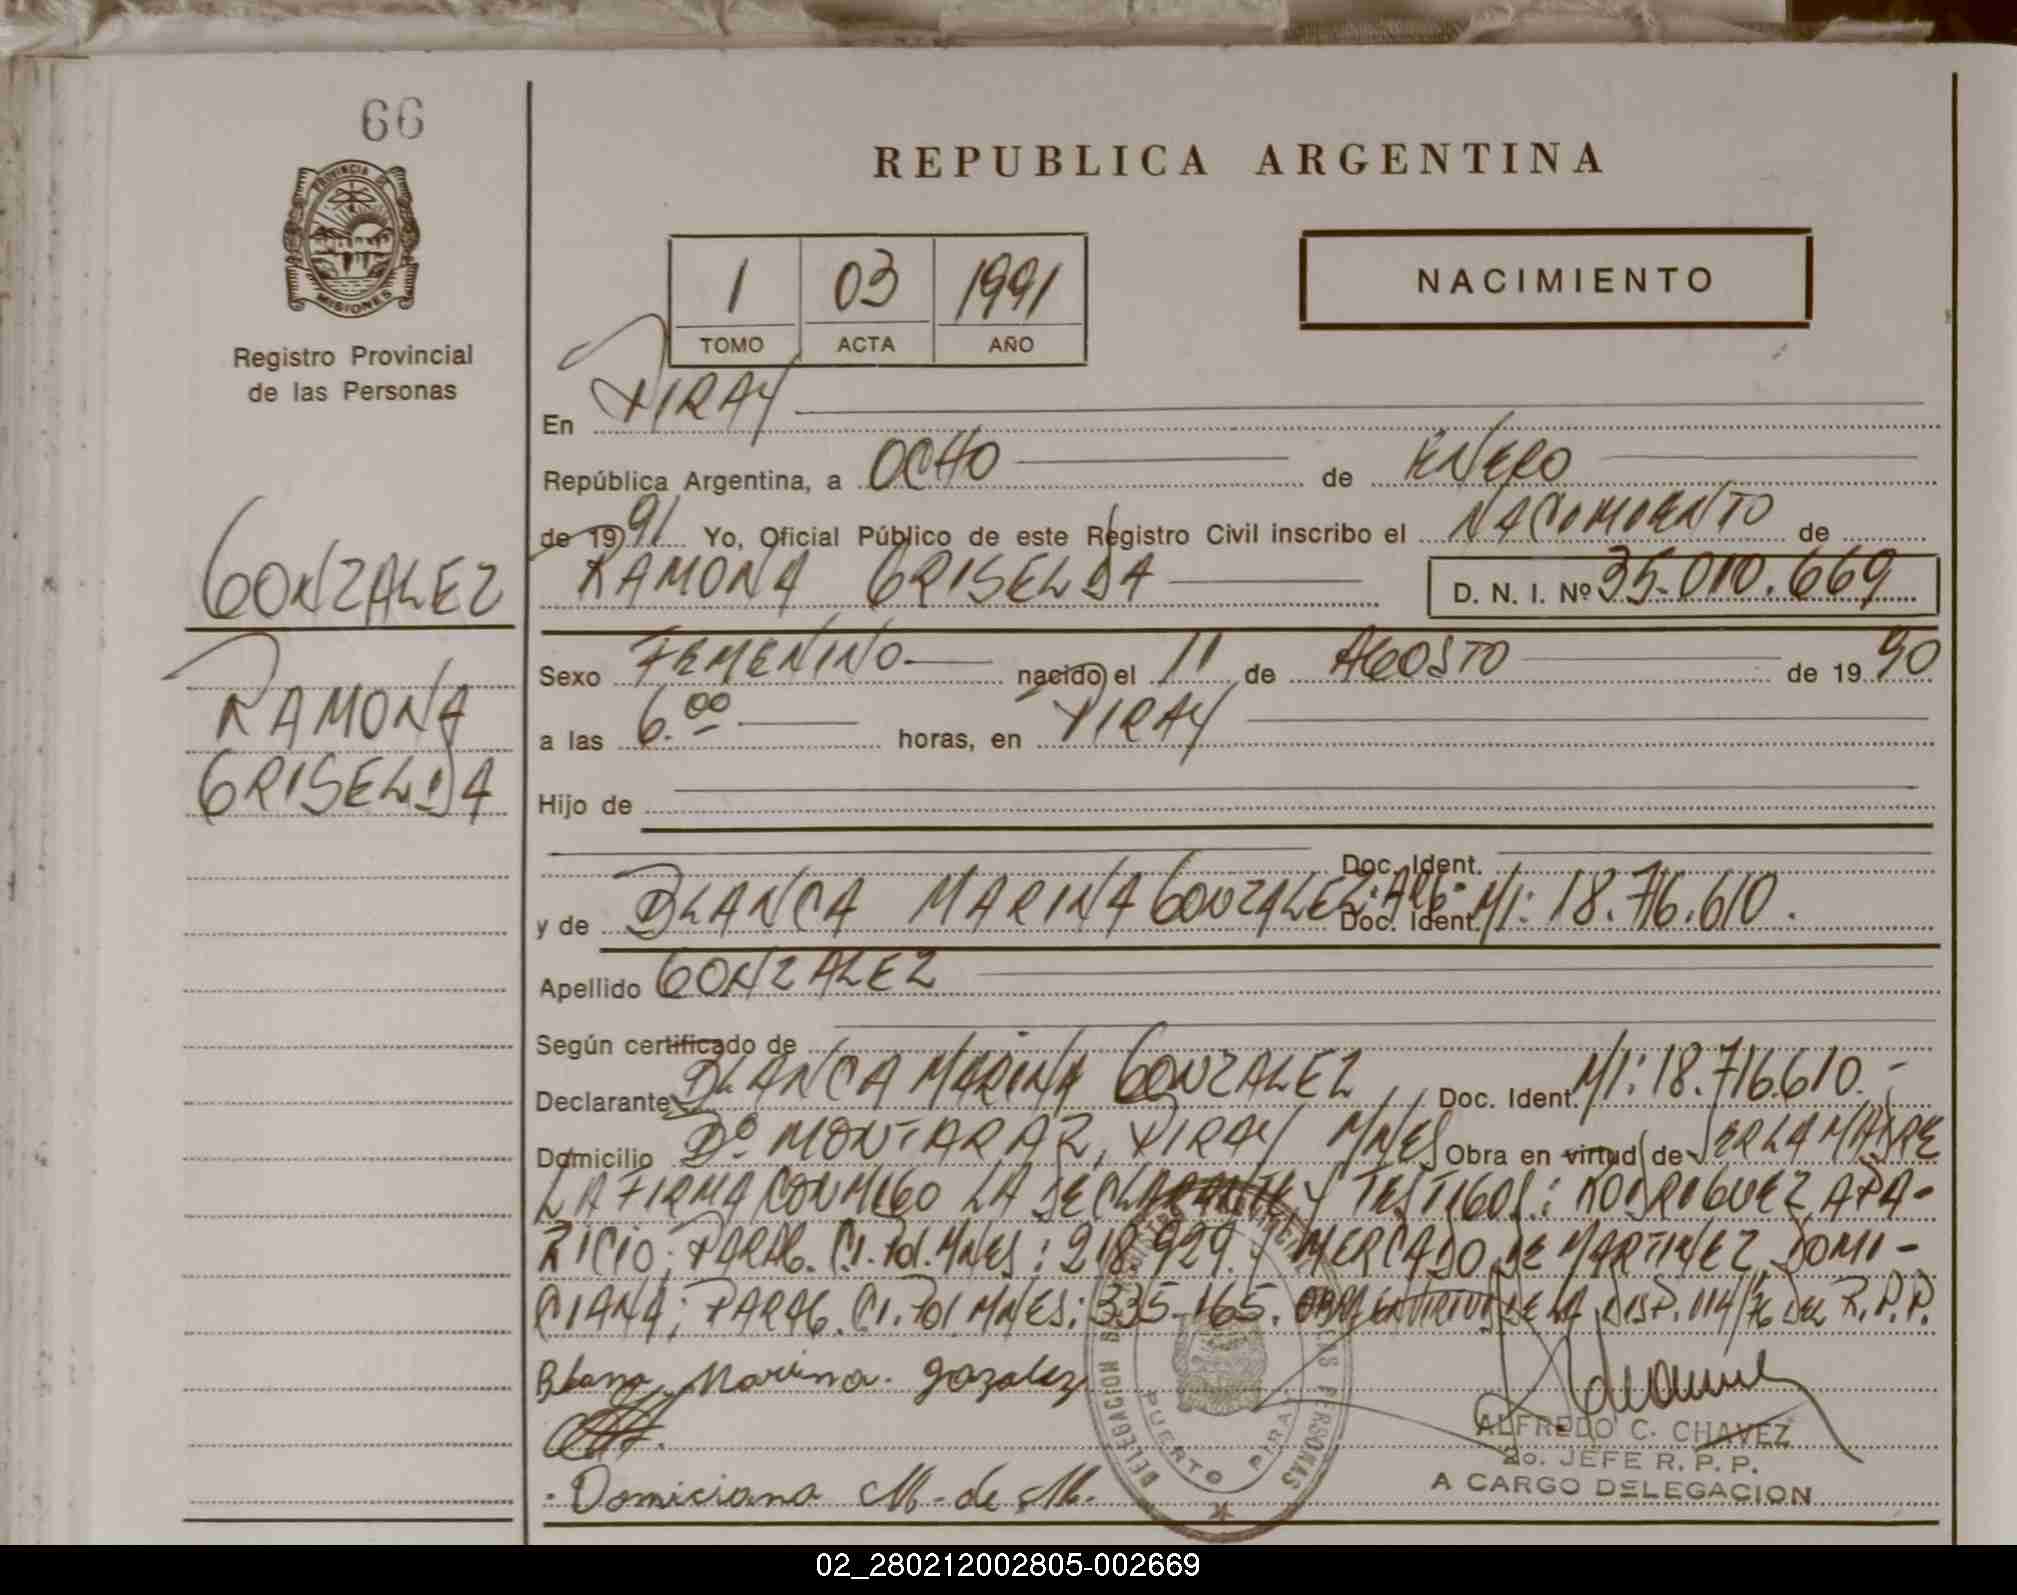 66
PROVINCIA DE
MISIONES
Registro Provincial
de las Personas
GONZALEZ
RAMONA
GRISELDA
REPUBLICA ARGENTINA
1 03 1991
TOMO ACTA AÑO
NACIMIENTO
En PIRAY
República Argentina, a OCHO de ENERO
de 1991 Yo, Oficial Público de este Registro Civil inscribo el NACIMIENTO de
RAMONA GRISELDA D. N. I. Nº 35.010.669
Sexo FEMENINO nacido el 11 de AGOSTO de 1990
a las 6.00 horas, en PIRAY
Hijo de
Doc. Ident.
y de BLANCA MARINA GONZALEZ. ARG. Doc. Ident. MI: 18.716.610.
Apellido GONZALEZ
Según certificado de
Declarante BLANCA MARINA GONZALEZ Doc. Ident. MI: 18.716.610.-
Domicilio Bº MONTARAZ, PIRAY MNES Obra en virtud de SER LA MADRE
LA FIRMA CONMIGO LA DECLARANTE Y TESTIGOS: RODRIGUEZ APA-
RICIO; PARAG. C.I. Pol. MNES: 218.929. Y MERCADO DE MARTINEZ DOMI-
CIANA; PARAG. C.I. Pol MNES: 335.165. OBRA EN VIRTUD DE LA DISP. 114/76 DEL R.P.P.
Blana Marina. gozalez
Domiciana M. de M.
DELEGACION PUERTO PIRAY
PERSONAS
ALFREDO C. CHAVEZ
2o. JEFE R. P. P.
A CARGO DELEGACION
02_280212002805-002669